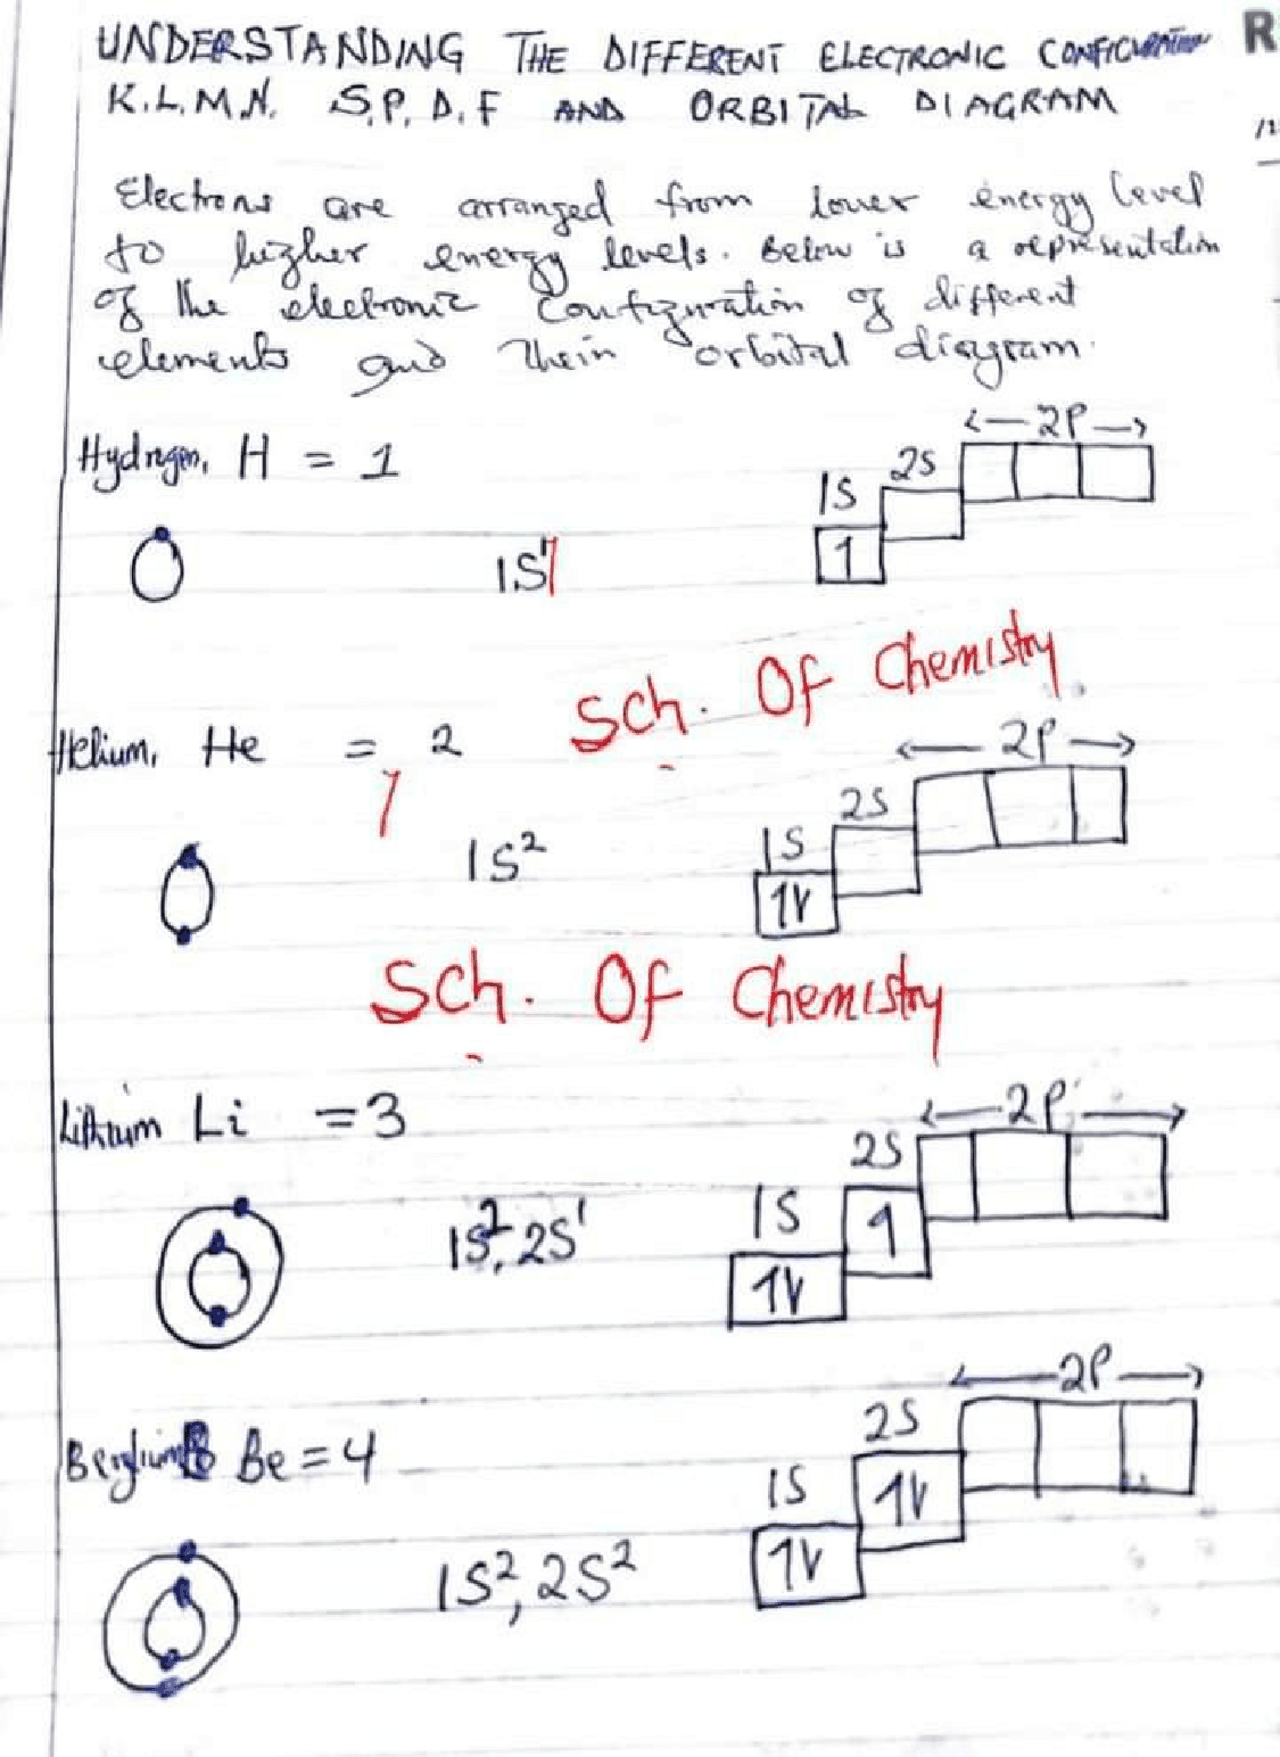 UNDERSTANDING THE DIFFERENT ELECTRONIC CONFIGURATION
K.L.M.N. S.P.D.F AND ORBITAL DIAGRAM
Electrons are arranged from lower energy level
to higher energy levels. Below is a representation
of the electronic configuration of different
elements and their orbital diagram.
Hydrogen, H = 1
1S¹
1S 2S 2P
1
Sch. Of Chemistry
Helium, He = 2
1S²
1S 2S 2P
1V
Sch. Of Chemistry
Lithium Li = 3
1S², 2S¹
1S 2S 2P
1V 1
Beryllium Be = 4
1S², 2S²
1S 2S 2P
1V 1V
R